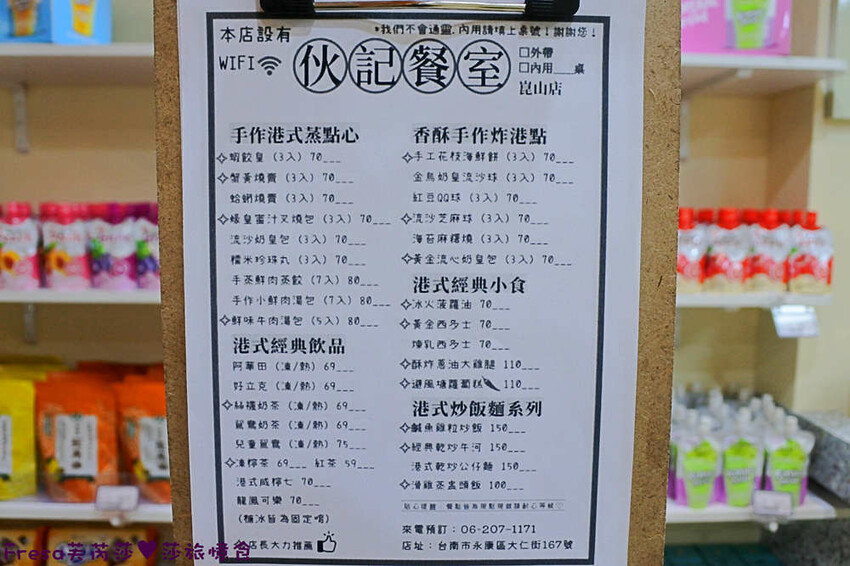 本店設有
WIFI
*我們不會通靈.內用請填上桌號!謝謝您!
伙記餐室
□外帶
□內用___桌
崑山店
手作港式蒸點心
◇蝦餃皇 (3入) 70___
◇蟹黃燒賣 (3入) 70___
蛤蜊燒賣 (3入) 70___
◇蠔皇蜜汁叉燒包 (3入) 70___
流沙奶皇包 (3入) 70___
糯米珍珠丸 (3入) 70___
手蒸鮮肉蒸餃 (7入) 80___
手作小鮮肉湯包 (7入) 80___
◇鮮味牛肉湯包 (5入) 80___
港式經典飲品
阿華田 (凍/熱) 69___
好立克 (凍/熱) 69___
◇絲襪奶茶 (凍/熱) 69___
鴛鴦奶茶 (凍/熱) 69___
兒童鴛鴦 (凍/熱) 75___
◇凍檸茶 69___ 紅茶 59___
港式咸檸七 70___
龍鳳可樂 70___
(糖冰皆為固定唷)
店長大力推薦
香酥手作炸港點
◇手工花枝海鮮餅 (3入) 70___
金烏奶皇流沙球 (3入) 70___
紅豆QQ球 (3入) 70___
◇流沙芝麻球 (3入) 70___
海苔麻糬燒 (3入) 70___
◇黃金流心奶皇包 (3入) 70___
港式經典小食
◇冰火菠蘿油 70___
◇黃金西多士 70___
煉乳西多士 70___
◇酥炸蔥油大雞腿 110___
◇避風塘蘿蔔糕 110___
港式炒飯麵系列
◇鹹魚雞粒炒飯 150___
◇經典乾炒牛河 150___
港式乾炒公仔麵 150___
◇滑雞蒸盅頭飯 100___
來電預訂:06-207-1171
店址:台南市永康區大仁街167號
Fresa芙芮莎♥莎旅憶食